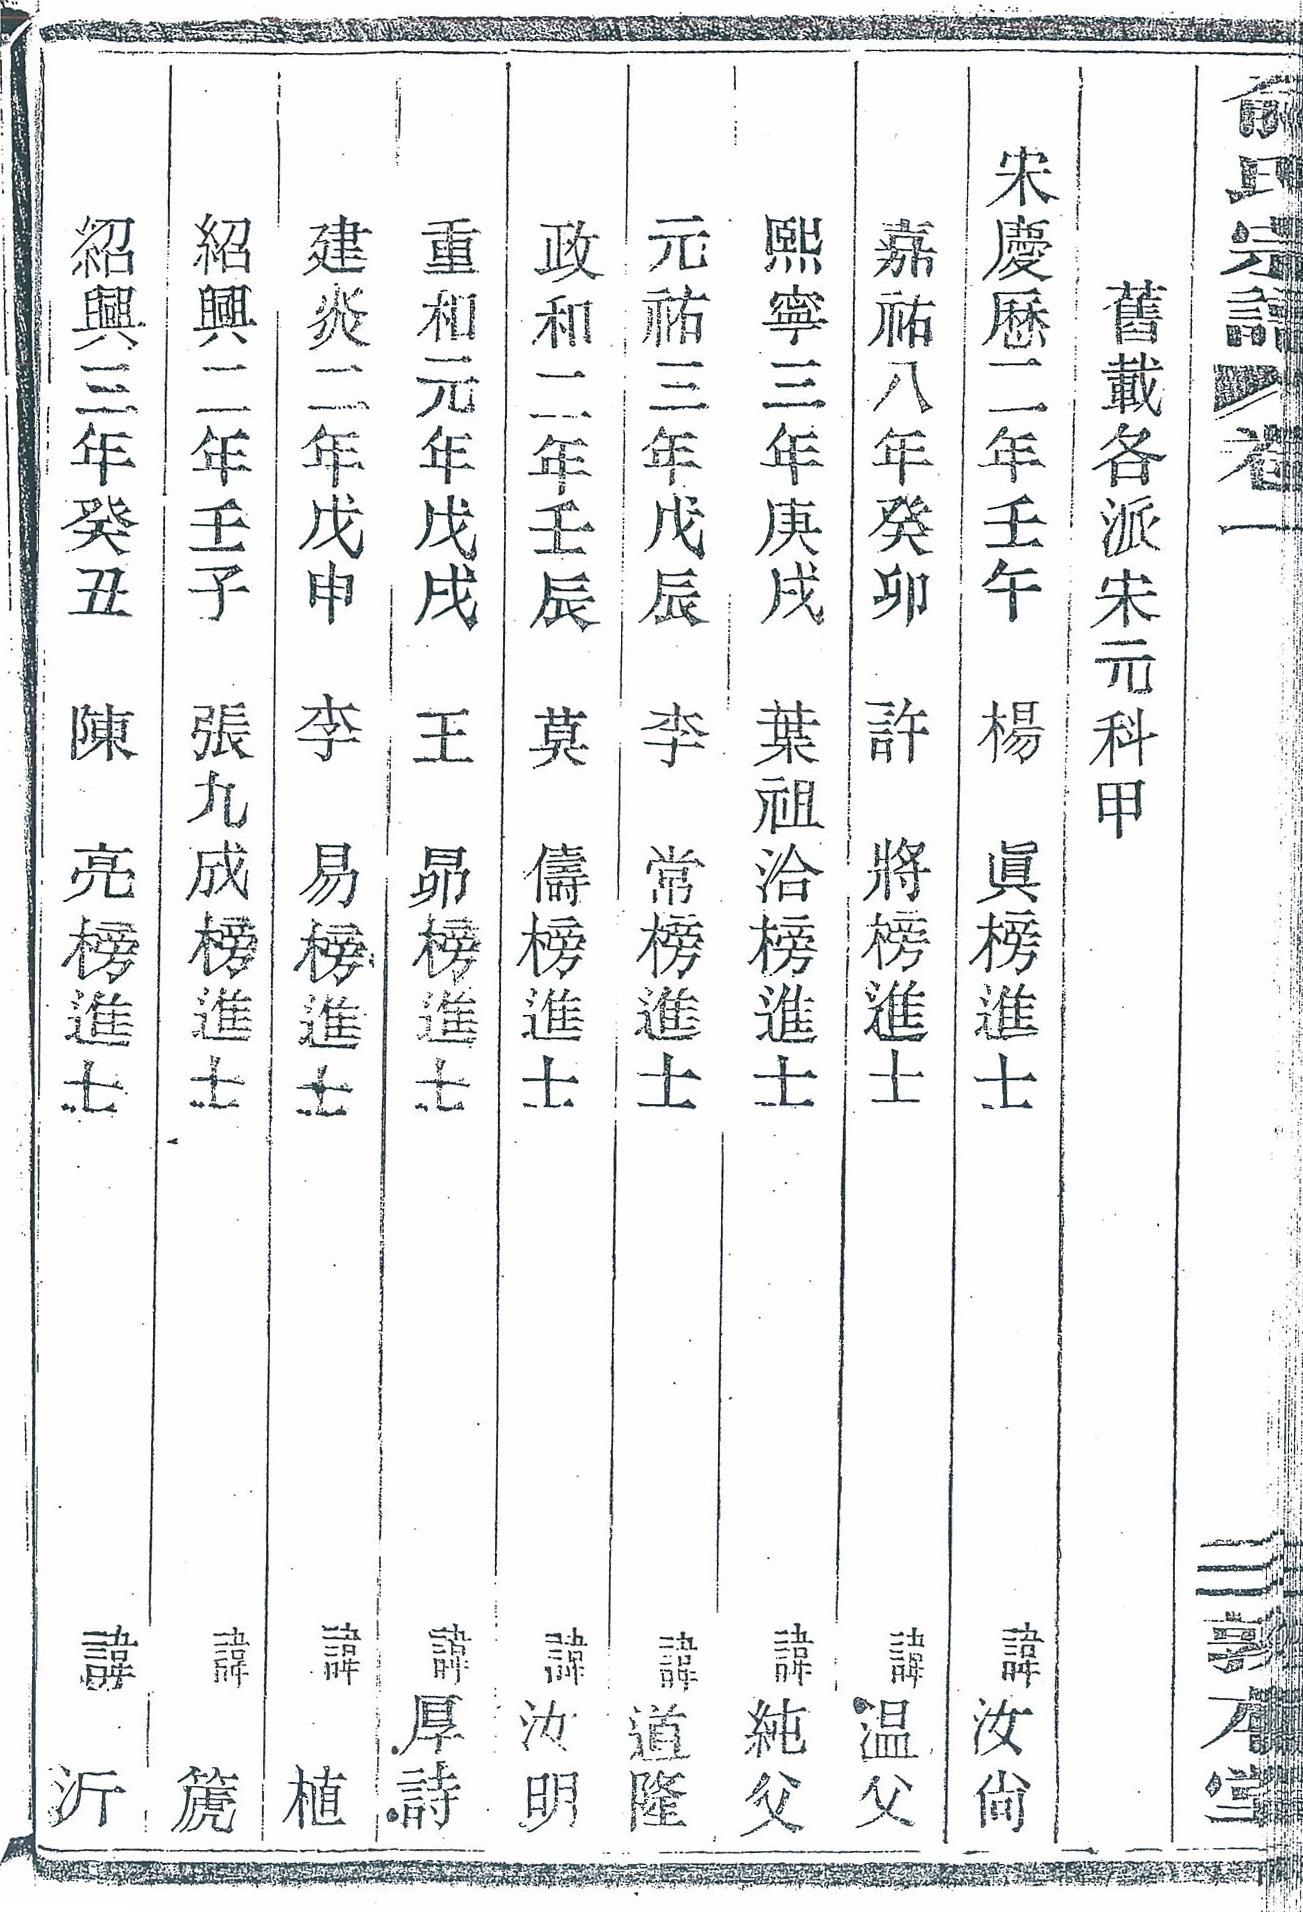 俞氏宗譜 卷一 三 敦本堂
舊載各派宋元科甲
宋慶歷二年壬午 楊 眞榜進士 諱汝尙
嘉祐八年癸卯 許 將榜進士 諱温父
熙寧三年庚戌 葉祖洽榜進士 諱純父
元祐三年戊辰 李 常榜進士 諱道隆
政和二年壬辰 莫 儔榜進士 諱汝明
重和元年戊戌 王 昴榜進士 諱厚詩
建炎二年戊申 李 易榜進士 諱 植
紹興二年壬子 張九成榜進士 諱 篪
紹興三年癸丑 陳 亮榜進士 諱 沂